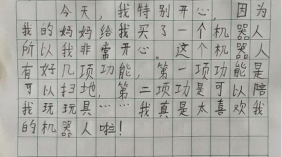 今天，我特别开心，因为
我的妈妈给我买了一个机器人
所以我非常开心。这个机器人
有好几项功能，第一项功能是
可以扫地，第二项功是可以陪
我玩玩具……我真是太喜欢我
的机器人啦！